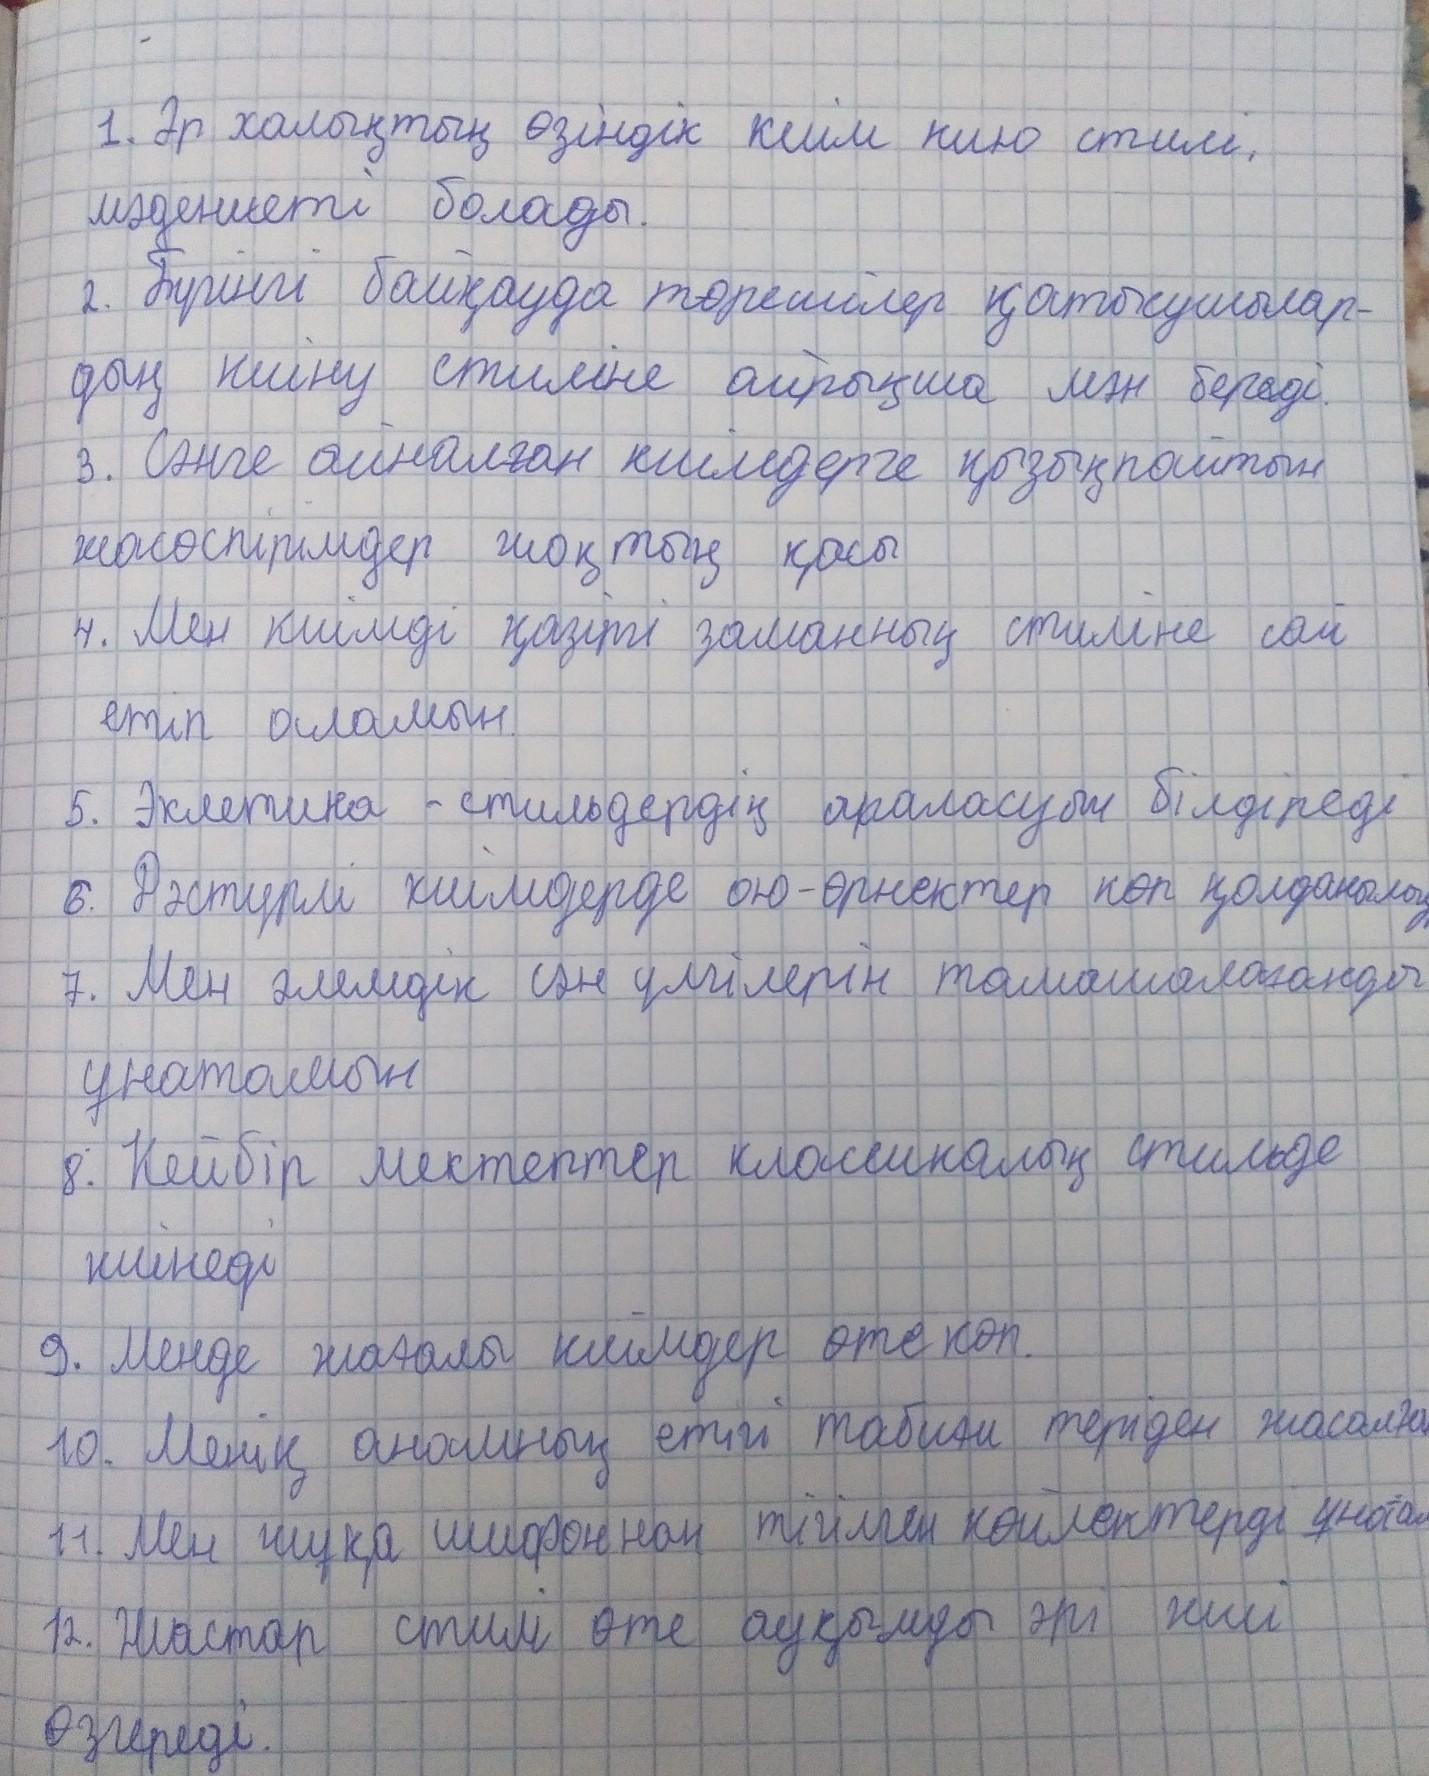 1. Әр халықтың өзіндік киім кию стилі,
мәдениеті болады.
2. Бүгінгі байқауда төрешілер қатысушылар-
дың киіну стиліне айрықша мән береді.
3. Сәнге айналған киімдерге қызықпайтын
жасөспірімдер жоқтың қасы
4. Мен киімді қазіргі заманның стиліне сай
етіп аламын.
5. Эклетика - стильдердің араласуын білдіреді
6. Дәстүрлі киімдерде ою-өрнектер көп қолданылы
7. Мен әлемдік сән үлгілерін тамашалағанды
ұнатамын
8. Кейбір мектептер классикалық стильде
киінеді
9. Менде жағалы киімдер өте көп.
10. Менің анамның етігі табиғи теріден жасалға
11. Мен жұқа шифоннан тігілген көйлектерді ұнатам
12. Жастар стилі өте ауқымды әрі жиі
өзгереді.